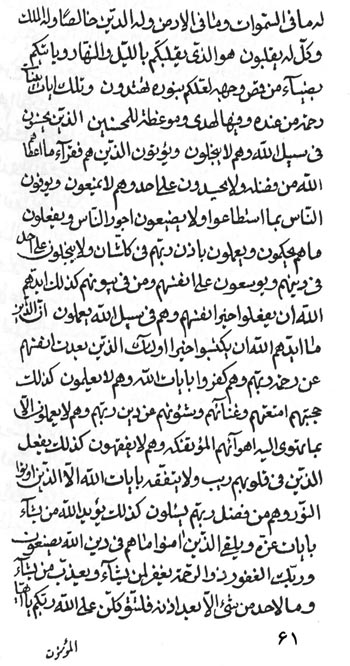 له ما فى السموات وما فى الارض وله الدين خالصا وله الملك
وكل له يقلبون هو الذى يقلبكم بالليل والنهار وياتيكم
بضياء من فيض وجهه لعلكم بنوره تهتدون وتلك ايات بينات
رحمة من عنده وفيها لهدى وموعظة للمحسنين الذين يحسنون
فى سبيل الله وهم لا يبخلون ويؤتون الذين هم فقرآء ما اعطاهم
الله من فضله ولا يحيدون على احد وهم لا يمنعون ويوفون
الناس بما استطاعوا ولا يضيعون اجور الناس ويفعلون
ما هم يحكون ويعملون باذن ربهم فى كل شان ولا يبخلون على احد
فى دينهم ويوسعون على انفسهم ومن فى بيوتهم كذلك ايدهم
الله ان يفعلوا خيرا انفسهم وهم فى سبيل الله يعملون ان الذين
ما ايدهم الله ان يكسبوا خيرا اوليك الذين بعدت انفسهم
عن رحمة ربهم وهم كفروا بايات الله وهم لا يعلمون كذلك
حجبتهم امتعتهم وغنائهم وشئونهم عن دين ربهم وهم لا يعملون الا
بما تهوى اليه اهوآئهم المؤتفكه وهم لا يفقهون كذلك يفعل
الذين فى قلوبهم ريب ولا يتفقه بايات الله الا الذين اوتوا
النور وهم من فضل ربهم يسئلون كذلك يؤيد الله من يشآء
بايات عزه ويلقى الذين امنوا ما هم فى دين الله يصنعون
وربك الغفور ذو الرحمة يغفر لمن يشآء ويعذب من يشآء
وما لاحد من شئ الا بعد اذنه فلتتوكلن على الله ربكم يا ايها
٦١
المؤمنون